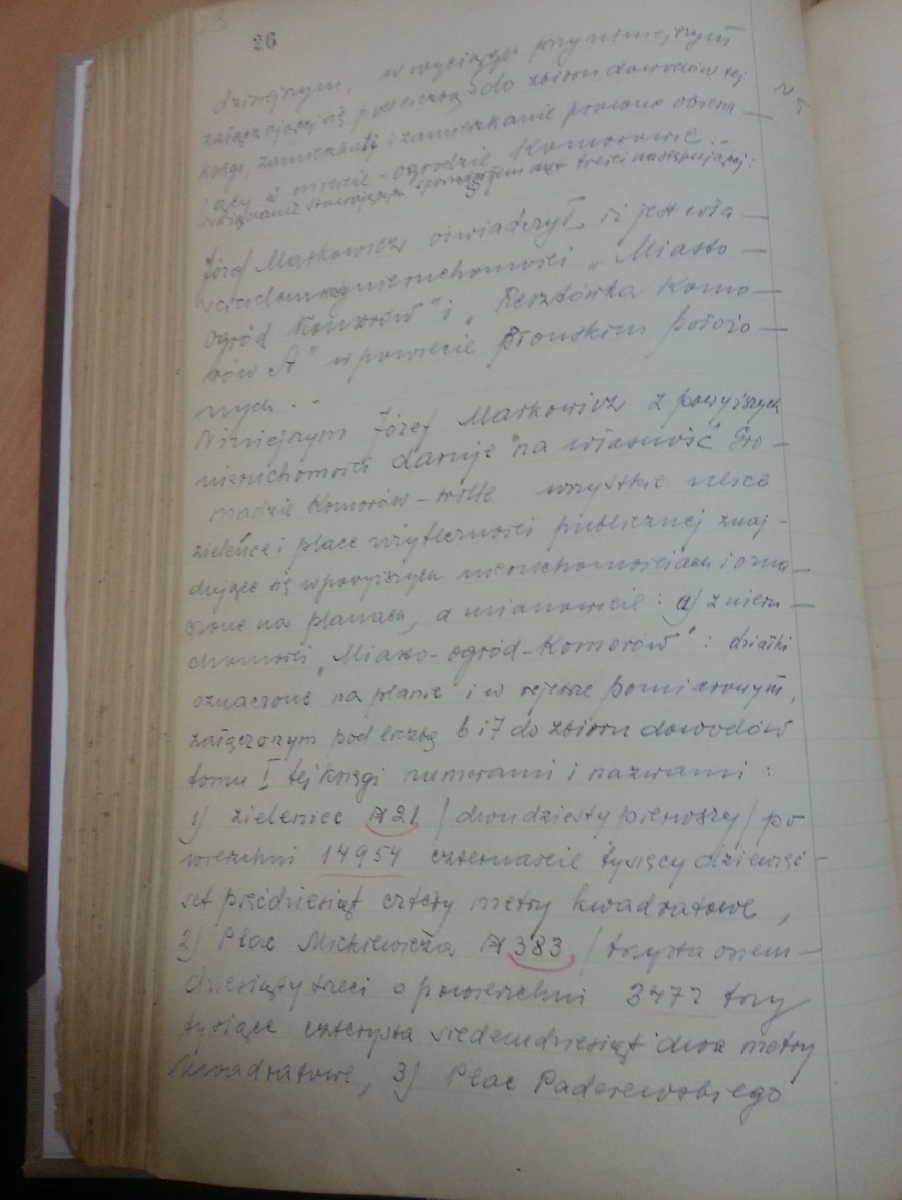 23
26
dzisiejszym, w wyciągu przy niniejszym
załączającej się pod liczbą 5 do zbioru dowodów tej
księgi, zamieszkały i zamieszkanie prawne obiera
jący w mieście-ogrodzie Komorowie. -
treści następującej:
Józef Markowicz oświadczył, iż jest wła
ścicielem nieruchomości „Miasto
Ogród Komorów" i „Resztówka Komo
rów A" w powiecie Błońskim położo
nych. -
Niniejszym Józef Markowicz z powyższych
nieruchomości daruje na własność Gro-
madzie Komorów-Wille wszystkie ulice
zieleńce i place użyteczności publicznej znaj-
dujące się w powyższych nieruchomościach i ozna
czone na planach, a mianowicie: a) z nieru
chomości „Miasto-ogród-Komorów": działki
oznaczone na planie i w rejestrze pomiarowym,
załączonym pod liczbą 6 i 7 do zbioru dowodów
tomu I tej księgi numerami i nazwami:
1) zielenice № 21 /dwudziesty pierwszy/ po
wierzchni 14954 czternaście tysięcy dziewię-
set pięćdziesiąt cztery metry kwadratowe,
2) Plac Mickiewicza № 383 /trzysta osiem-
dziesiąty trzeci o powierzchni 3472 trzy
tysiące czterysta siedemdziesiąt dwa metry
kwadratowe, 3) Plac Paderewskiego